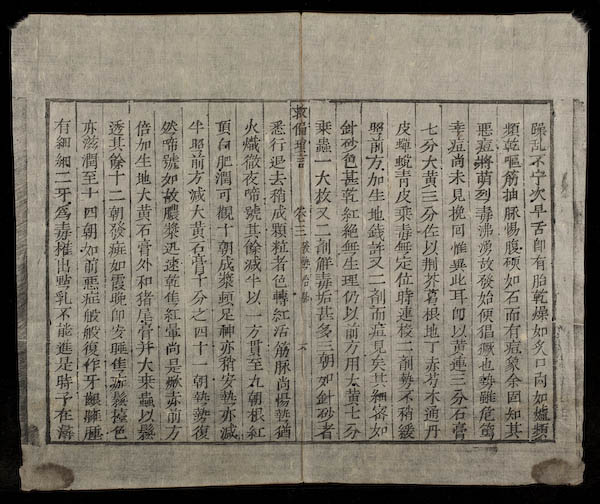 躁乱不寧次早舌卽有胎乾燥如炙口向如爐類
頻乾嘔筋抽脈惕腹硬如石而有痘象余固知其
惡痘將萌列毒沸湧故發始便猖獗也勢雖危篤
幸痘尚未見挽回惟此耳卽以黃連三分石膏
七分大黃三分佐以荆芥葛根地丁赤芍木通丹
皮蟬蛻青皮乘毒無定位時連投二劑勢不稍緩
照前方加生地錢許又二劑而痘見矣其細密如
針砂色甚乾紅絕無生理仍以前方用大黃七分
桑蟲一大枚又二劑解毒垢甚多三朝如針砂者
救偏瑣言 卷三 六
悉行退去稍成顆粒者色轉紅活筋脈尚惕熱猶
火熾徹夜啼號其餘減半以一方貫至九朝根紅
頂白肥潤可觀十朝成漿頓足神亦稍安熱亦減
半照前方減大黃石膏十分之四十一朝熱勢復
然啼號如故膿漿迅速乾焦紅暈尚是焮赤前方
倍加生地大黃石膏外和猪尾膏并大桑蟲以鬆
透其餘十二朝發斑如霞晚卽安睡焦痂鬆擡色
亦滋潤至十四朝如前惡症般般復作牙齦腫
有細細二牙爲毒摧出點乳不能進是時予在潯